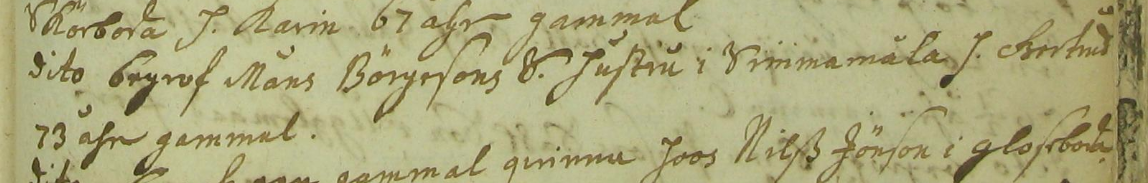 Skörboda J. Karin 67 ahr gammal
dito begrof Måns Börgesons S. Justru i Srimamåla J. Chertud
73 ahr gammal.
dito gammal quinna hoos Nilß Jönson i gloseboda